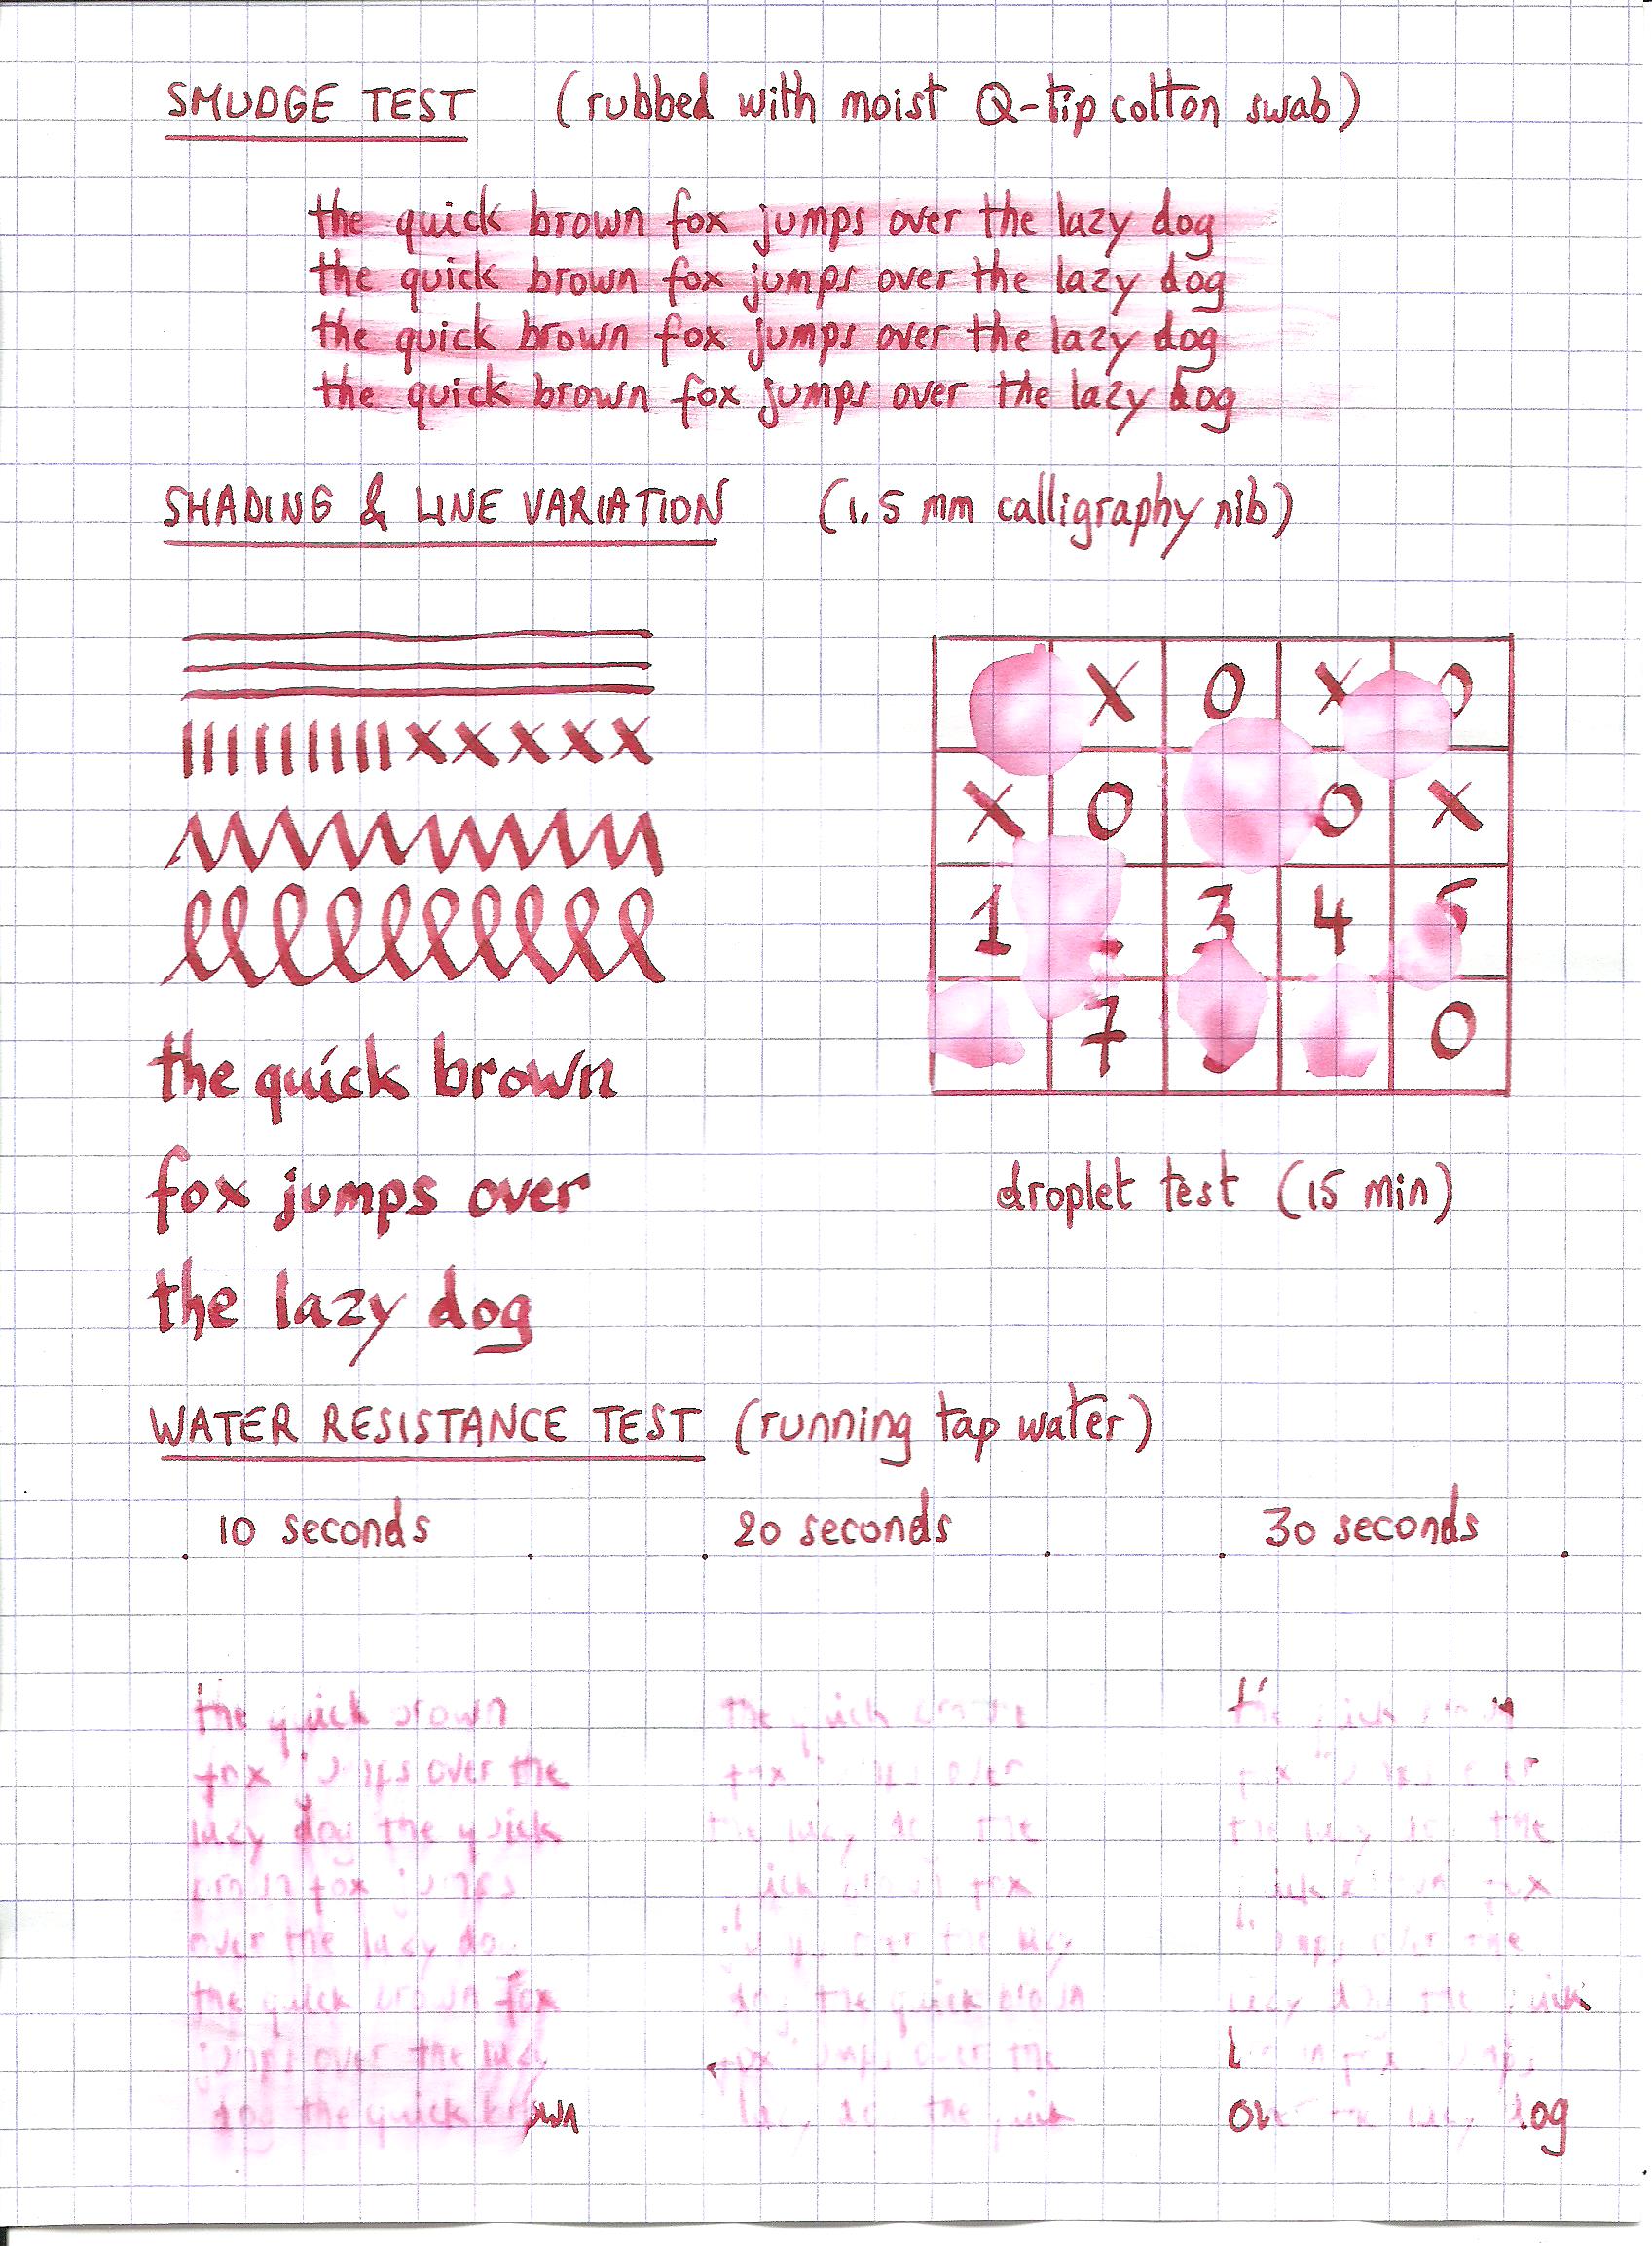 SMUDGE TEST (rubbed with moist Q-tip cotton swab)
the quick brown fox jumps over the lazy dog
the quick brown fox jumps over the lazy dog
the quick brown fox jumps over the lazy dog
the quick brown fox jumps over the lazy dog
SHADING & LINE VARIATION (1.5 mm calligraphy nib)
X O X O
X O O X
1 3 4 5
7 0
the quick brown
fox jumps over
the lazy dog
droplet test (15 min)
WATER RESISTANCE TEST (running tap water)
10 seconds 20 seconds 30 seconds
the quick brown
fox over the
lazy dog the quick
brown fox jumps
over the lazy
the quick brown fox
jumps over the lazy
dog the quick brown
the quick
fox over
the lazy the
brown fox
over the lazy
dog the quick brown
fox jumps over the
the quick
the
fox
the lazy the
fox
over the
the quick
dog